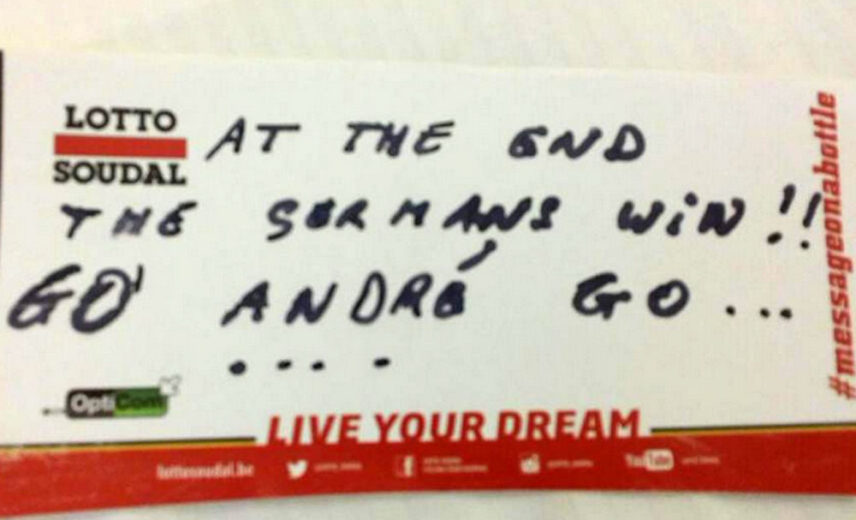 LOTTO
SOUDAL
AT THE END
THE GERMANS WIN!!
GO' ANDRÉ GO...
....
OptiCom
LIVE YOUR DREAM
lottosoudal.be
YouTube
#messageonabottle